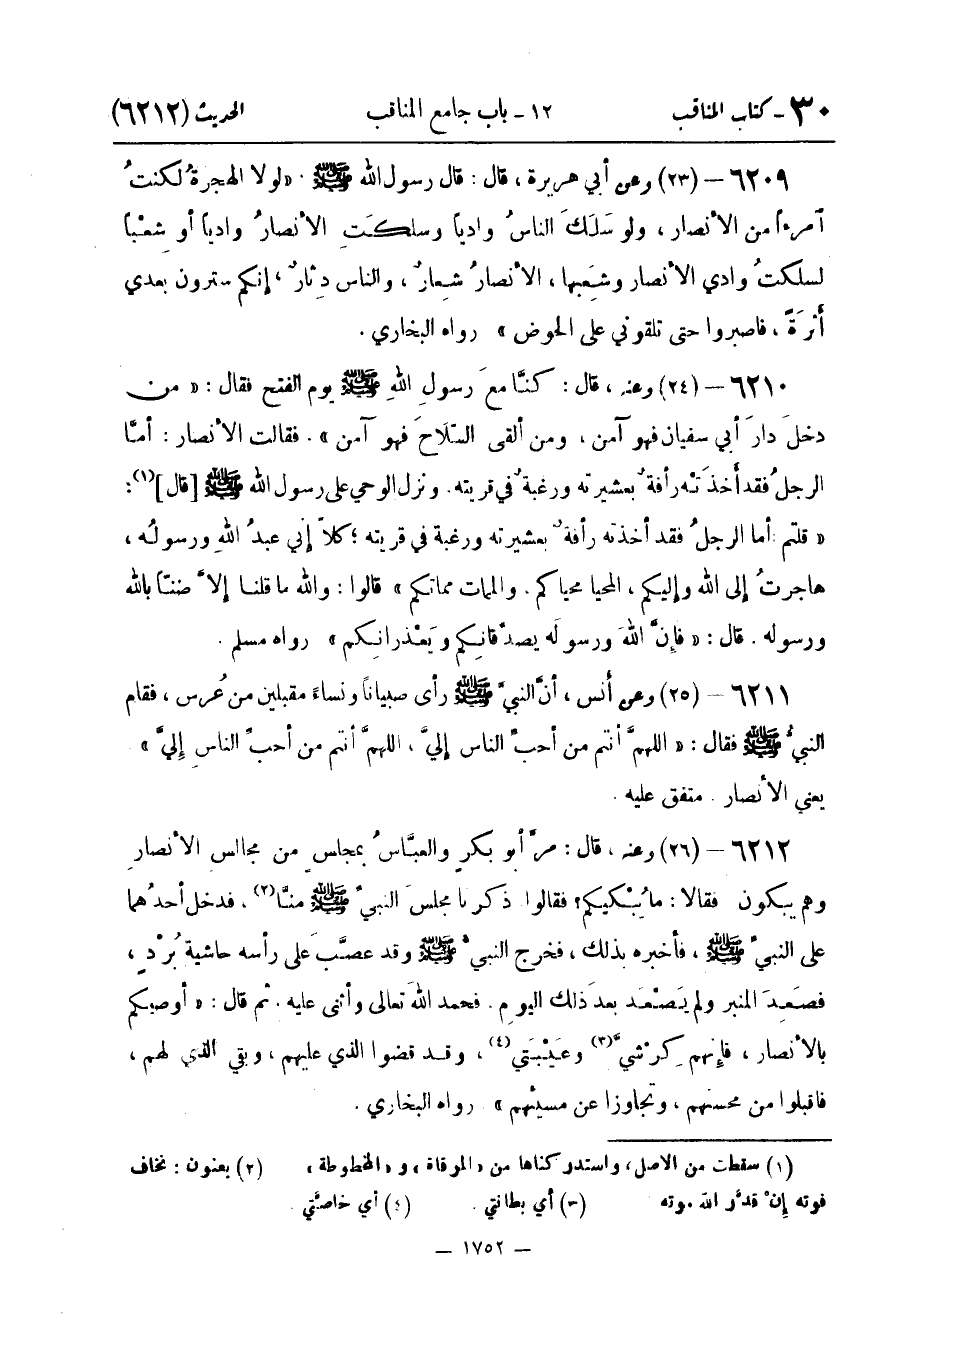 ٣٠ - كتاب المناقب ١٢ - باب جامع المناقب الحديث (٦٢١٢)
٦٢٠٩ – (٢٣) وعن أبي هريرة ، قال : قال رسول الله ﷺ : « لولا الهجرةُ لكنتُ
آمرءاً من الأنصار ، ولو سَلَكَ الناسُ وادياً وسلكَتِ الأنصارُ وادياً أو شِعْباً
لسلكتُ وادي الأنصار وشِعبها ، الأنصارُ شِعارٌ ، والناس دِثارٌ ، إنكم سترون بعدي
أثرَةً ، فاصبروا حتى تلقوني على الحوض » رواه البخاري .
٦٢١٠ – (٢٤) وعنه ، قال : كنَّا معَ رسولِ اللهِ ﷺ يوم الفتح فقال : « من
دخلَ دارَ أبي سفيان فهو آمن ، ومن ألقى السِّلاحَ فهو آمن » . فقالت الأنصار : أمَّا
الرجلُ فقد أَخذَتْه رأفةٌ بعشيرته ورغبةٌ في قريته . ونزل الوحي على رسول الله ﷺ [قال](١) :
« قلتم : أما الرجلُ فقد أخذته رأفةٌ بعشيرته ورغبة في قريته ؛ كلاَّ إني عبدُ اللهِ ورسولُه ،
هاجرتُ إلى الله وإليكم ، المحيا محياكم . والممات مماتكم » قالوا : والله ما قلنا إلاَّ ضنّاً بالله
ورسوله . قال : « فإنَّ اللهَ ورسولَه يصدِّقانِكم ويَعْذرانِكم » رواه مسلم .
٦٢١١ – (٢٥) وعن أنس ، أنَّ النبيَّ ﷺ رأى صبياناً ونساءً مقبلين من عُرس ، فقام
النبيُّ ﷺ فقال : « اللهمَّ أنتم من أحبِّ الناس إليَّ ، اللهمَّ أنتم من أحبِّ الناسِ إليَّ »
يعني الأنصار . متفق عليه .
٦٢١٢ – (٢٦) وعنه ، قال : مرَّ أبو بكرٍ والعبَّاسُ بمجلسٍ من مجالسِ الأنصارِ
وهم يبكون فقالا : ما يُبْكيكم؟ فقالوا ذكرنا مجلسَ النبيِّ ﷺ منَّا(٢) ، فدخل أحدُهما
على النبيِّ ﷺ ، فأخبره بذلك ، فخرج النبيُّ ﷺ وقد عصَّبَ على رأسه حاشيةَ بُرْدٍ ،
فصَعِدَ المنبر ولم يَصْعَد بعدَ ذلك اليومِ . فحمد اللهَ تعالى وأثنى عليه . ثم قال : « أوصيكم
بالأنصار ، فإنهم كِرْشي(٣) وعَيْبَتي(٤) ، وقد قضوا الذي عليهم ، وبقي الذي لهم ،
فاقبلوا من محسنهم ، وتجاوزا عن مسيئهم » رواه البخاري .
(١) سقطت من الاصل ، واستدركناها من « المرقاة » و « المخطوطة » (٢) يعنون : نخاف
فوته إنْ قدَّر الله موته (٣) أي بطانتي . (٤) أي خاصَّتي .
– ١٧٥٢ –